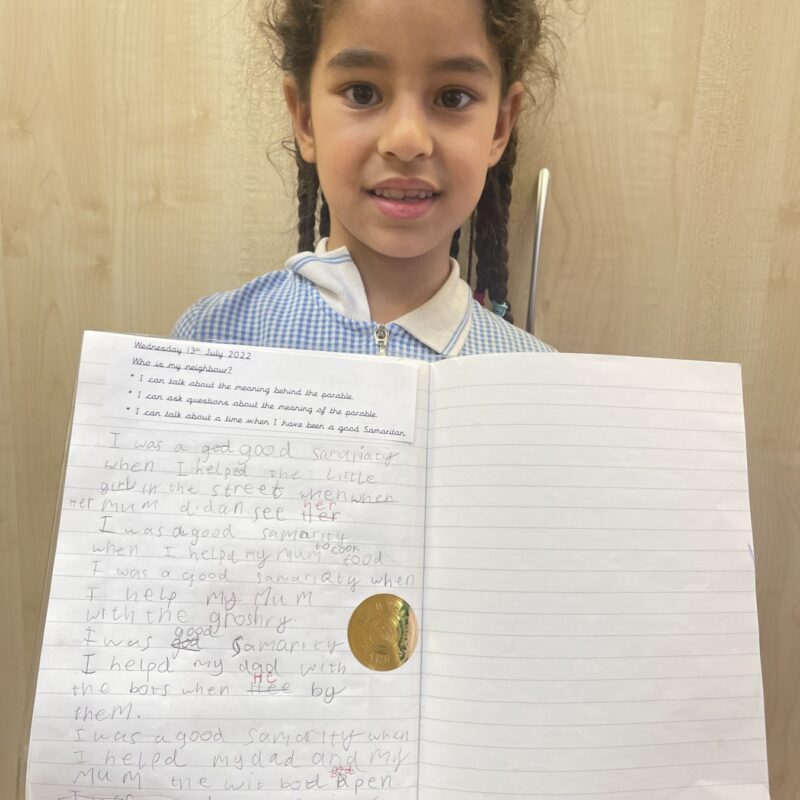 Wednesday 13th July 2022
Who is my neighbour?
* I can talk about the meaning behind the parable.
* I can ask questions about the meaning of the parable.
* I can talk about a time when I have been a good Samaritan.
I was a god good samariaty
when I helped the Little
girl in the street when when
Her mum didan see her Her
I was a good samarity
when I helpd my mum to cook food
I was a good samariaty when
I help my mum
with the groshry
I was good god Samarity
I helpd my dad with
the bors when He Hee by
them.
I was a good samarity when
I helpd my dad and my
mum the wit